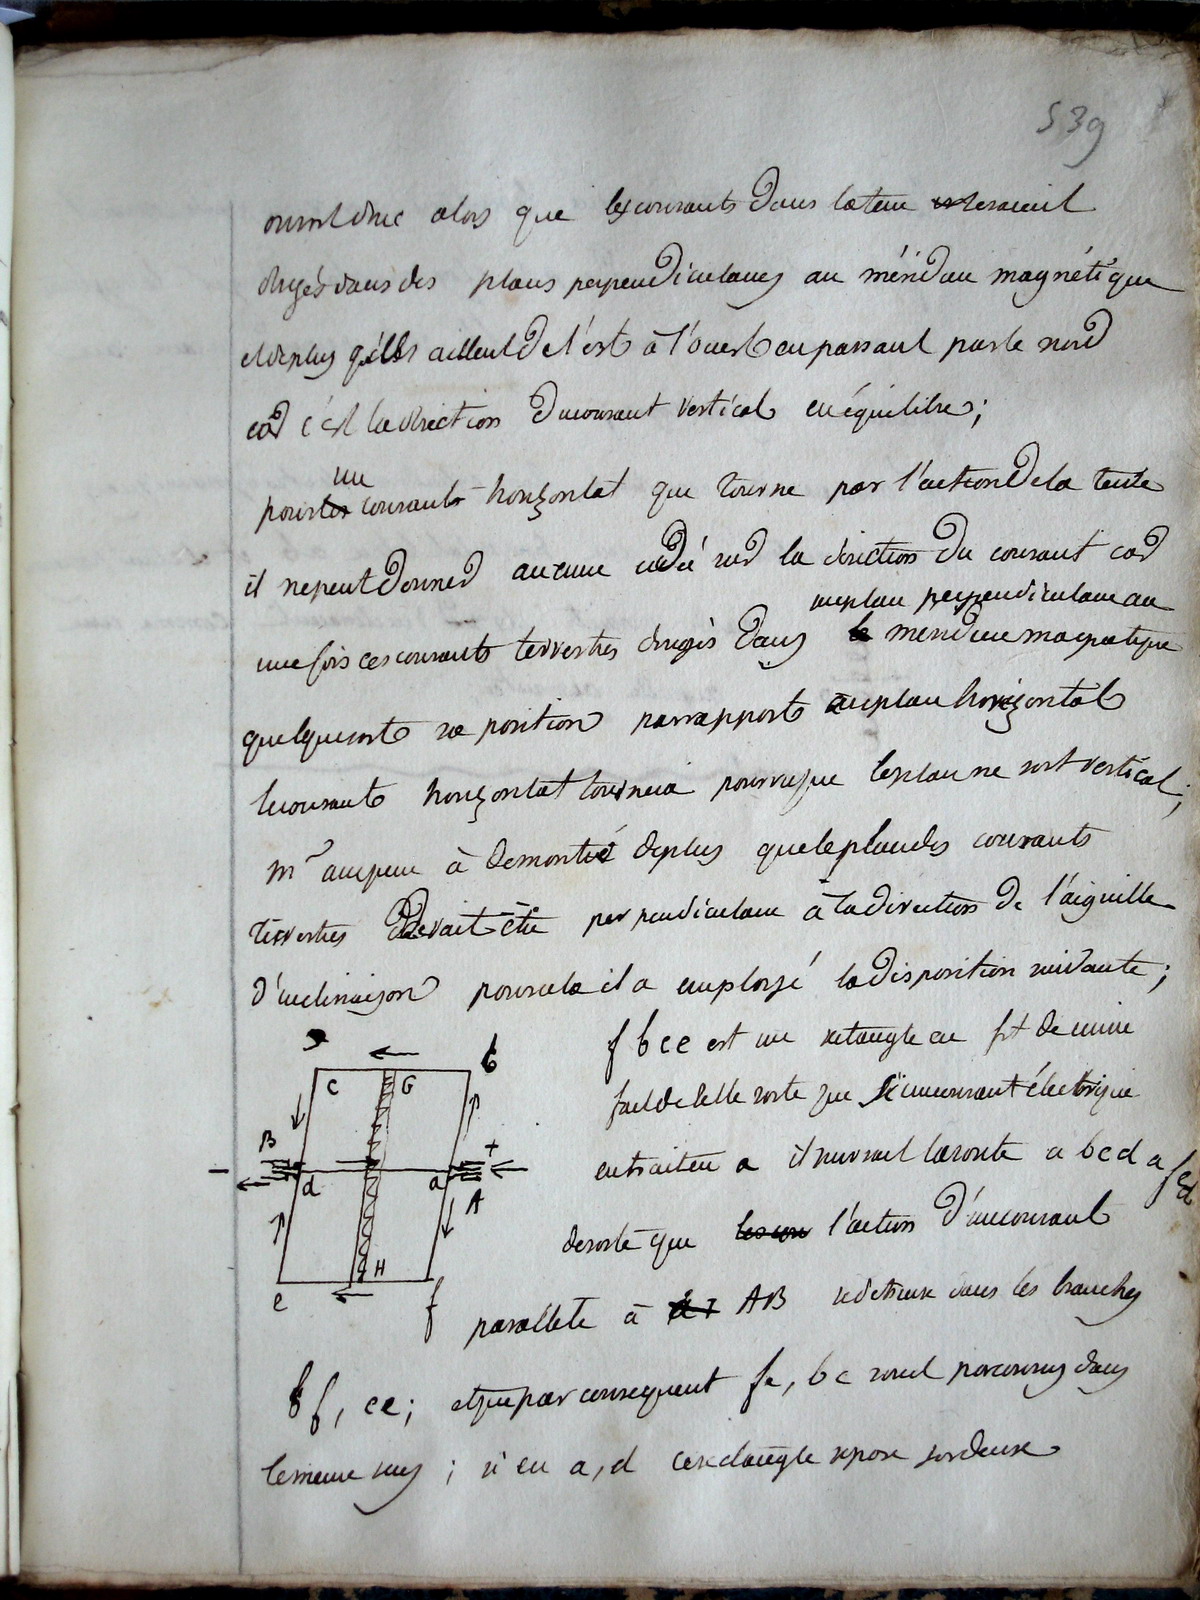 539
on voit donc alors que les courants dans la terre seraient
dirigés dans des plans perpendiculaires au méridien magnétique
et de plus qu'ils aillent de l'est à l'ouest en passant par le nord
car c'est la direction du courant vertical en équilibre;
un
pour courant horizontal que tourne par l'action de la terre
il ne peut donner aucune idée sur la direction du courant car
un plan perpendiculaire au
une fois ces courants terrestres dirigés dans le méridien magnetique
quelque soit sa position par rapport au plan horizontal
le courant horizontal tournera pourvu que le plan ne soit vertical;
mr ampere à démontré de plus que le plan des courants
terrestres devait être perpendiculaire à la direction de l'aiguille
d'inclinaison pour cela il a employé la disposition suivante;
f b c e est un rectangle en fil de cuivre
fait de telle sorte que si un courant électrique
entrait en a il suivrait la route a b c d a f e d
de sorte que l'action d'un courant
parallele à AB se detruise dans les branches
b f, c e; et que par consequent f e, b c sont parcourus dans
le meme sens; si en a, d ce rectangle repose sur deux
b
C G
B
+
d a
A
H
e f